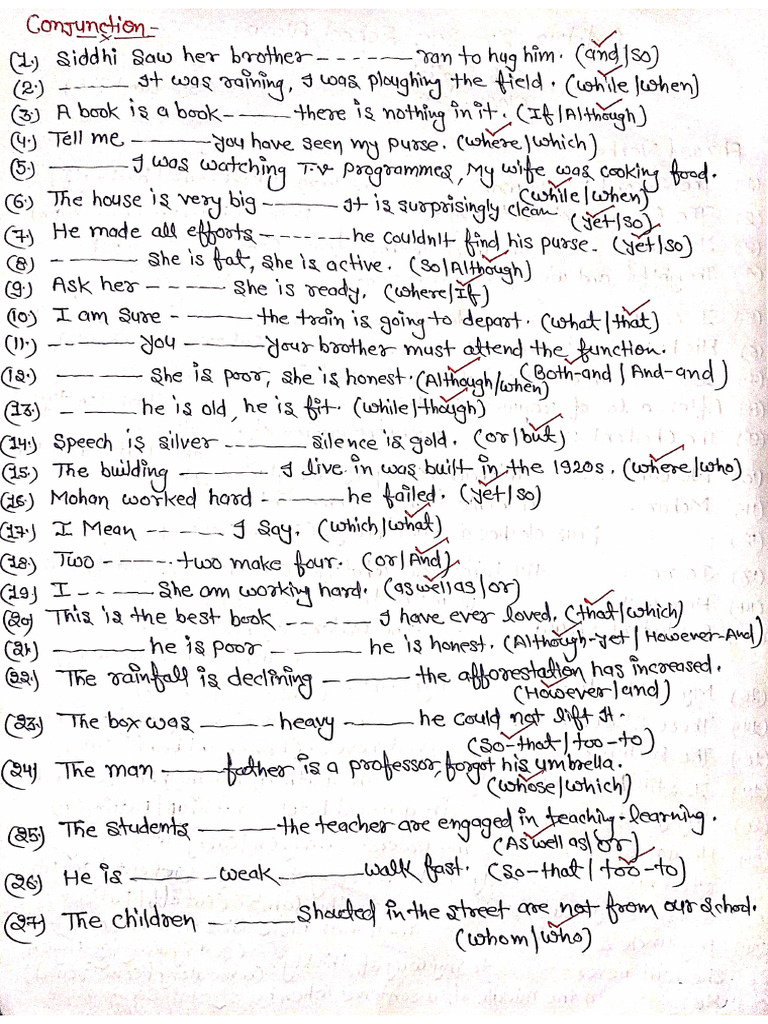 Conjunction:-
(1.) Siddhi saw her brother ------ ran to hug him. (and/so)
(2.) ------ It was raining, I was ploughing the field. (while/when)
(3.) A book is a book ----- there is nothing in it. (If/Although)
(4.) Tell me ------ you have seen my purse. (where/which)
(5.) ------ I was watching T.V programmes, My wife was cooking food.
(while/when)
(6.) The house is very big ------ It is surprisingly clean
(yet/so)
(7.) He made all efforts ------ he couldn't find his purse. (yet/so)
(8.) ------ She is fat, she is active. (So/Although)
(9.) Ask her ------ She is ready. (where/If)
(10.) I am sure ------ the train is going to depart. (what/that)
(11.) ------ you ------ your brother must attend the function.
(Both-and/And-and)
(12.) ------ She is poor, she is honest. (Although/when)
(13.) ------ he is old, he is fit. (while/though)
(14.) Speech is silver ------ silence is gold. (or/but)
(15.) The building ------ I live in was built in the 1920s. (where/who)
(16.) Mohan worked hard ------ he failed. (yet/so)
(17.) I Mean ------ I say. (which/what)
(18.) Two ------ two make four. (or/And)
(19) I ------ She am working hard. (as well as/or)
(20) This is the best book ------ I have ever loved. (that/which)
(21.) ------ he is poor ------ he is honest. (Although-yet/However-And)
(22.) The rainfall is declining ------ the afforestation has increased.
(However/and)
(23.) The box was ------ heavy ------ he could not lift it.
(So-that/too-to)
(24) The man ----- father is a professor, forgot his umbrella.
(whose/which)
(25) The students ------ the teacher are engaged in teaching-learning.
(As well as/or)
(26) He is ------ weak ------ walk fast. (So-that/too-to)
(27) The children ------ Shouted in the street are not from our school.
(whom/who)